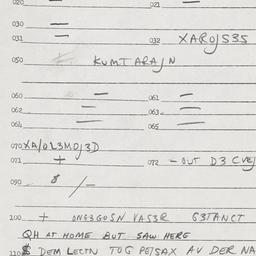 020 — 021 —
030 —
031 — 032 XAROJS35
050 KUMTARAJN
060 — 061 —
062 — 063 —
064 — 065 —
070 XA/OL3MOJ3D
071 + 072 -OUT D3 CVEJ
090 $ /-
100 + ONG3GOSN VAS3R G3TANCT
QH AT HOME BUT SAW HERE
110 $ DEM LECTN TOG PETSAX AV DER NA